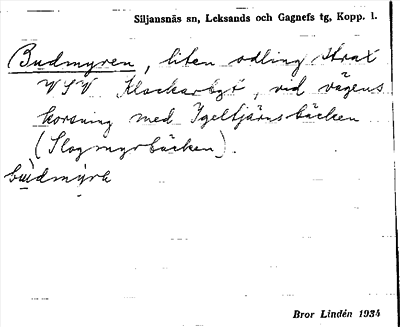 Siljansnäs sn, Leksands och Gagnefs tg, Kopp. l.
Budmyren, liten odling strax
VSV Klockarbyt, vid vägens
korsning med Igeltjärnsbäcken
(Slogmyrbäcken).
budmyrɑ
Bror Lindén 1934